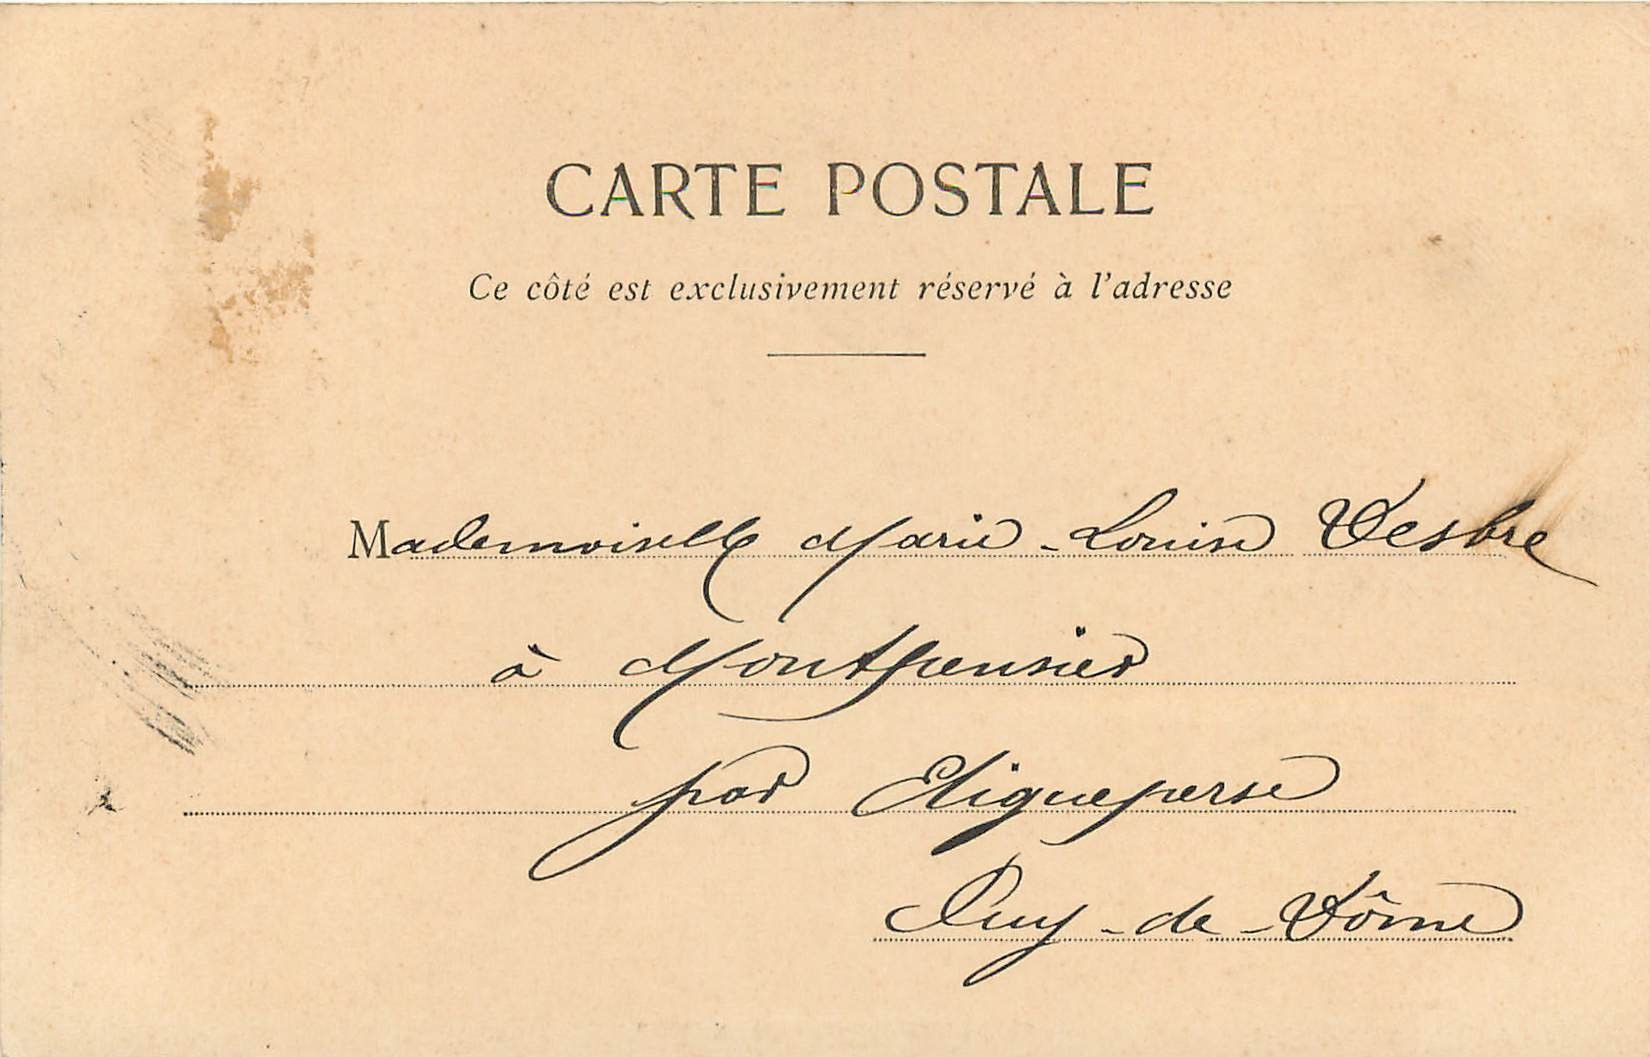 CARTE POSTALE
Ce côté est exclusivement réservé à l'adresse
Mademoiselle Marie-Louise Desbre
à Montpensier
par Aigueperse
Puy-de-Dôme